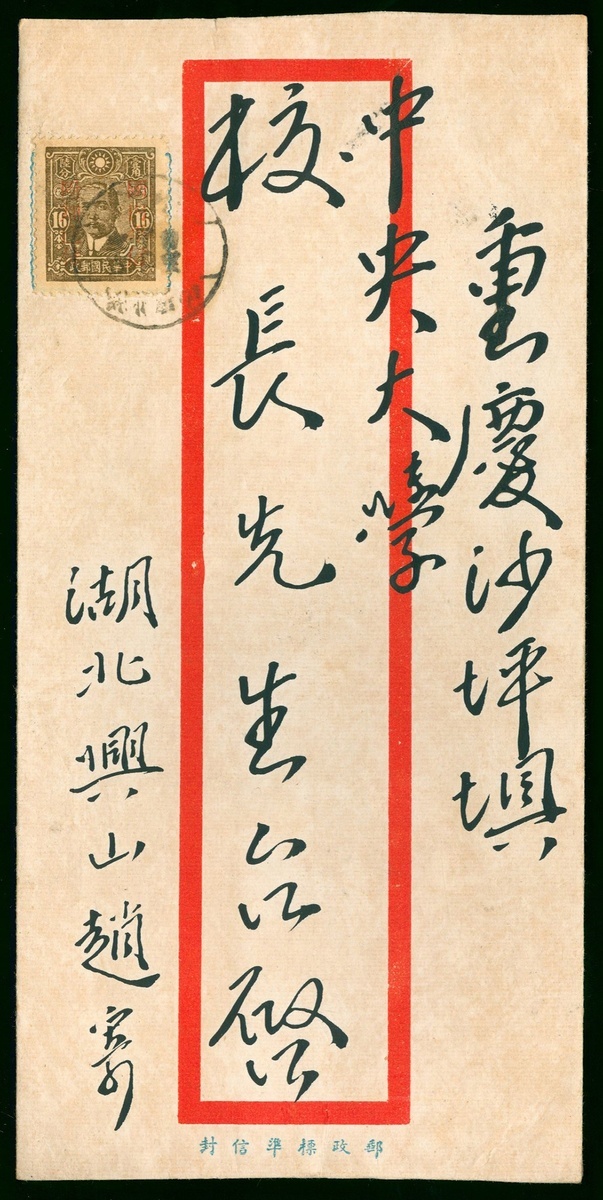 重慶沙坪埧
中央大學
校長先生台啟
湖北興山趙寄
16
16
中華民國郵政
郵政標準信封